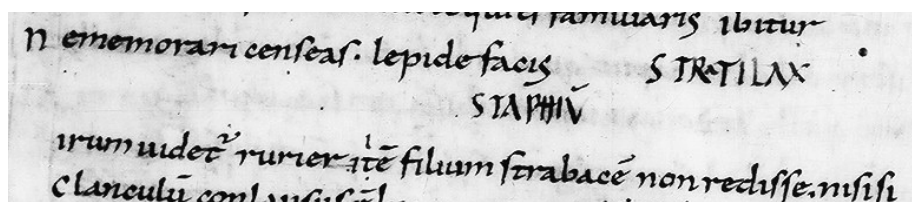 familiaris ibitur
N ememorari censeas. lepide facis STRATILAX
STAPHIŪ
irum uidet᷑ ruri eritē filium strabacē non redisse. nisi si
Clanculū conlapsus ē